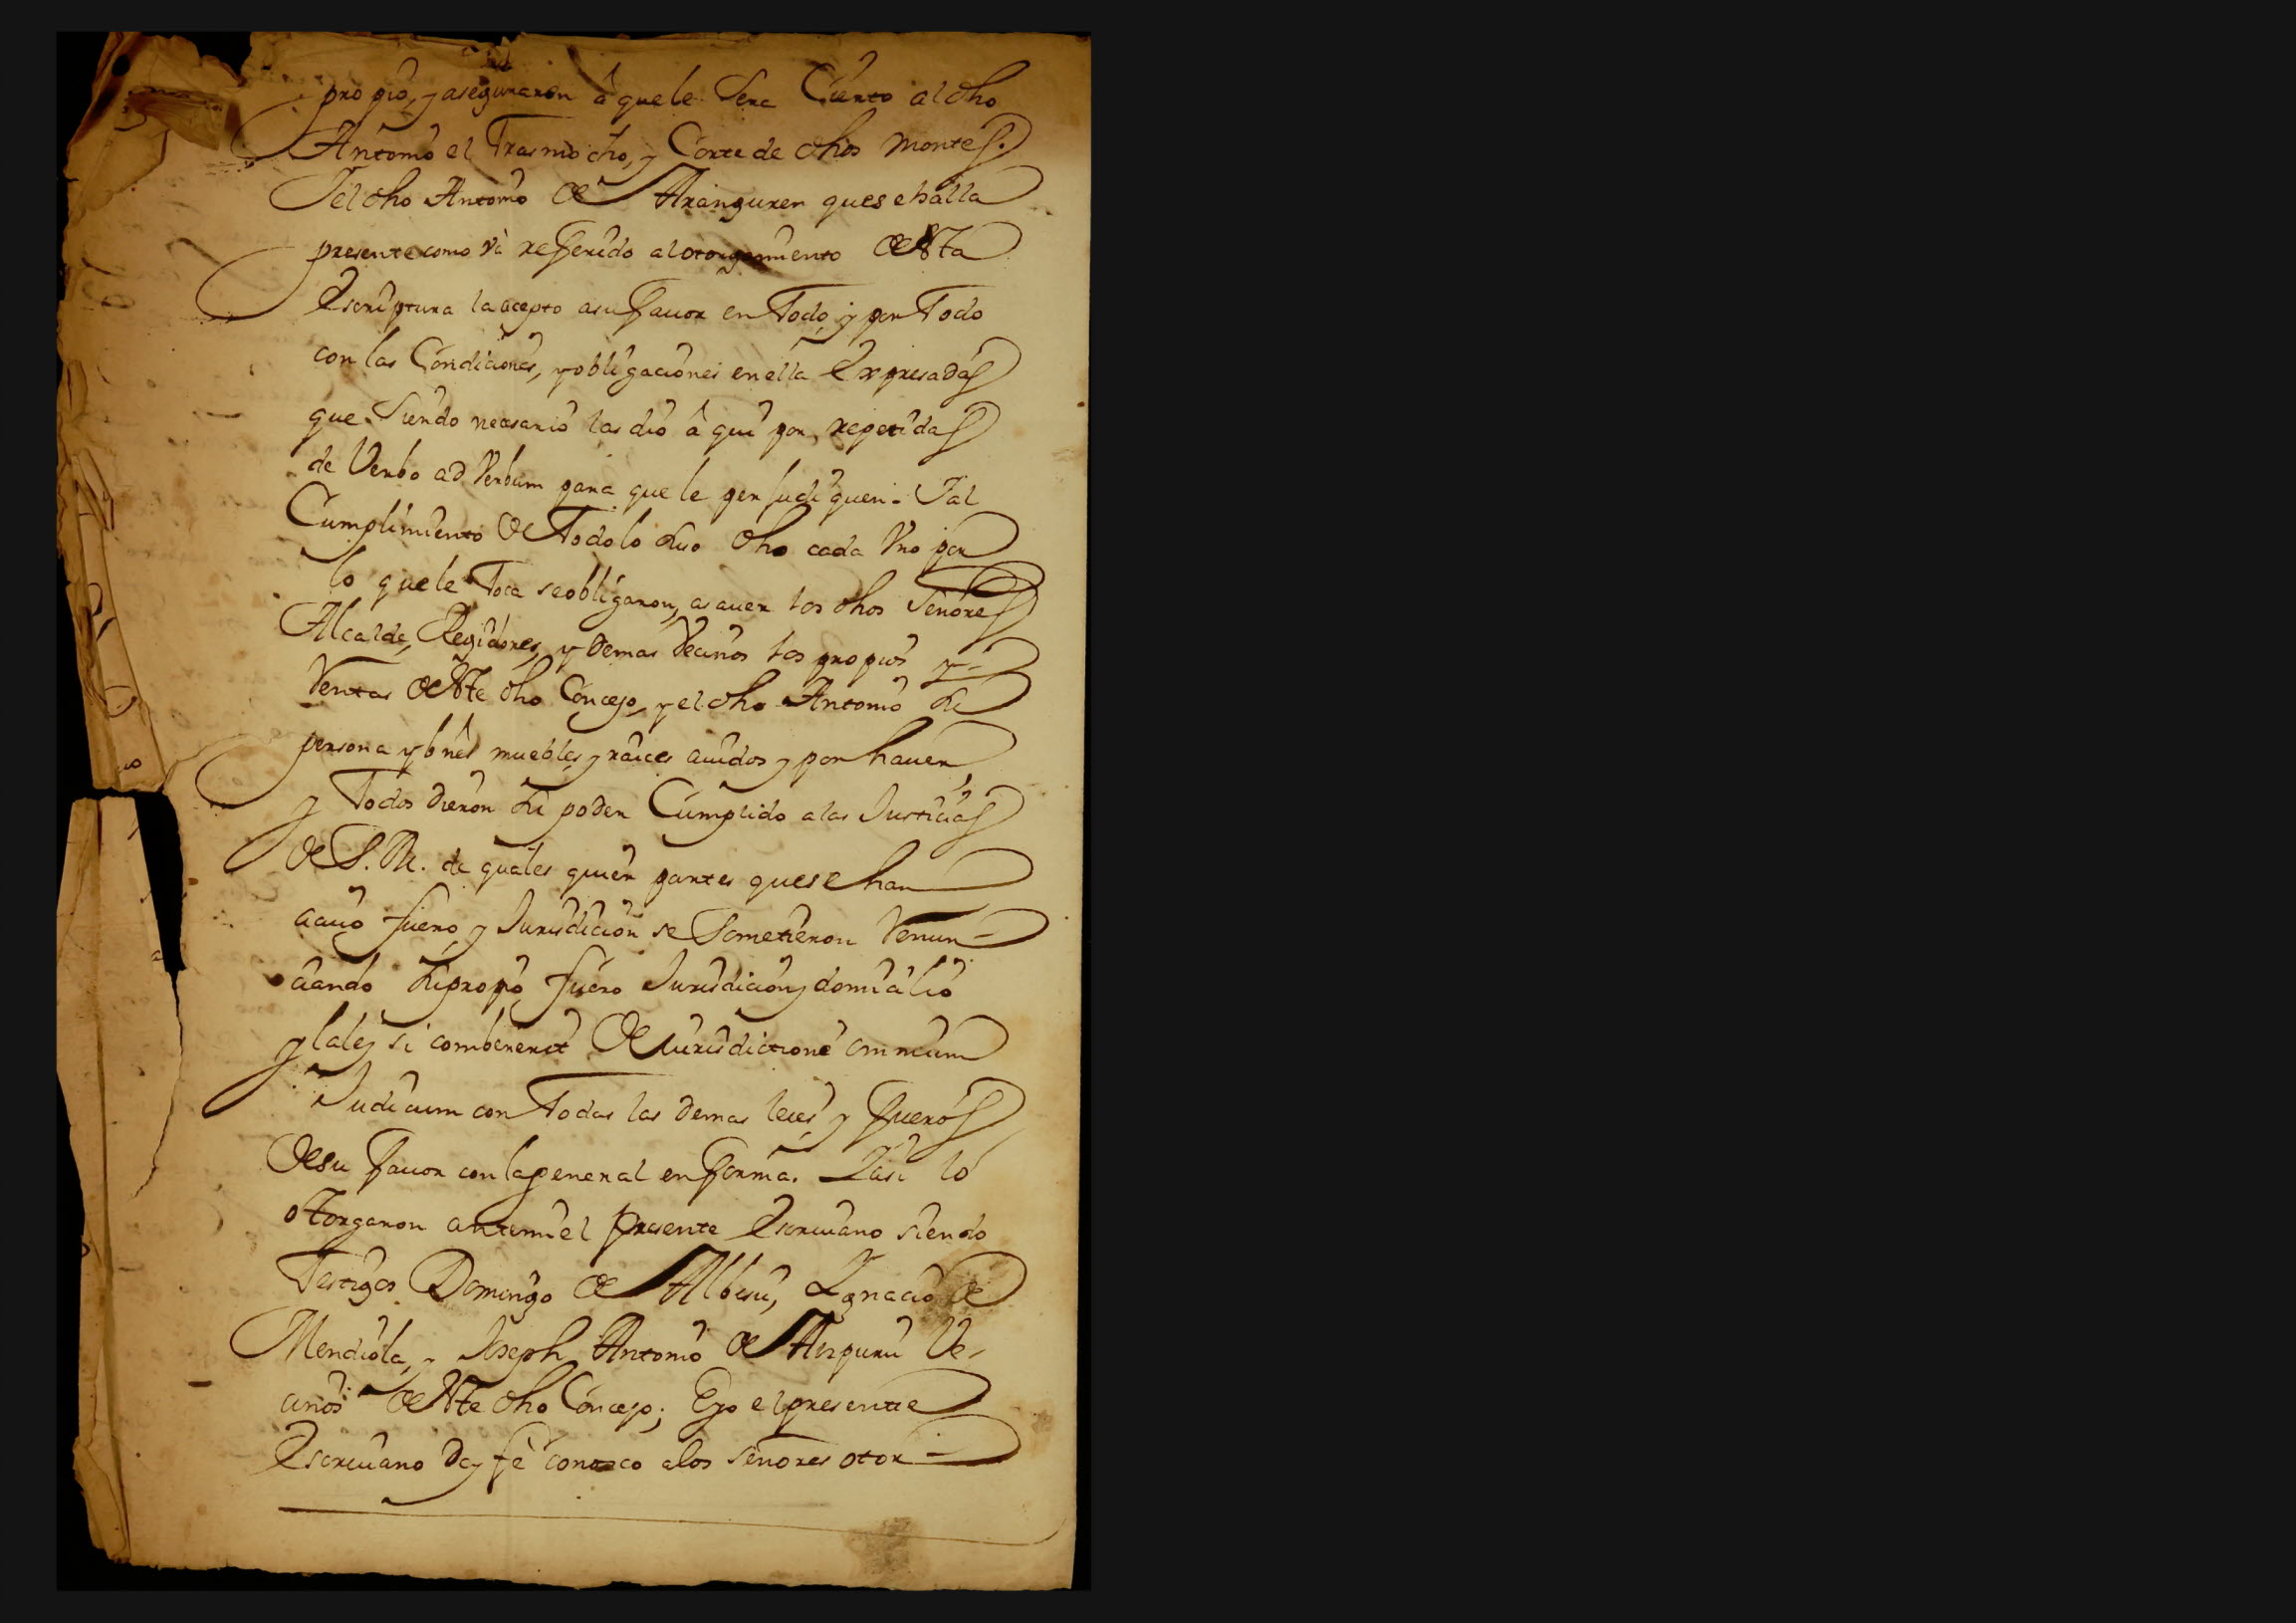 propio, y aseguraron â que le Sera Cierto al dho
Antonio el Trasmocho, y Corte de dhos montes.
Iel dho Antonio de Aranguren que se halla
presente como và referido al otorgamiento desta
Escriptura la acepto a su favor en Todo, y por Todo
con las Condiciones, y obligaciones en ella Expresadas
que Siendo necesario las dio â qui por repetidas
de Verbo ad Verbum para que le perjudiquen. Ial
Cumplimiento de Todo lo suso dho cada Uno por
lo que le Toca se obligaron, asaver los dhos Señores
Alcalde, Regidores, y demas Vecinos los propios y
Rentas deste dho Concejo, y el dho Antonio su
persona y bnes muebles, y raices avidos y por haver,
y Todos dieron su poder Cumplido a las Justicias
de S. M. de quales quier partes que se han
acuio fuero, y Jurisdicion se Sometieron Renun-
ciando su propio fuero Jurisdicion y domicilio
y la ley si combenerit de iurisdictione omnium
Judicum con Todas las demas leies, y fueros
de su favor con la general en forma. I asi lo
otorgaron antemi el presente Escrivano siendo
Testigos Domingo de Albisu, Ignacio de
Mendiola, y Joseph Antonio de Aizpuru Ve-
cinos deste dho Concejo; E yo el presente
Escrivano doy fè conozco a los Señores otor-